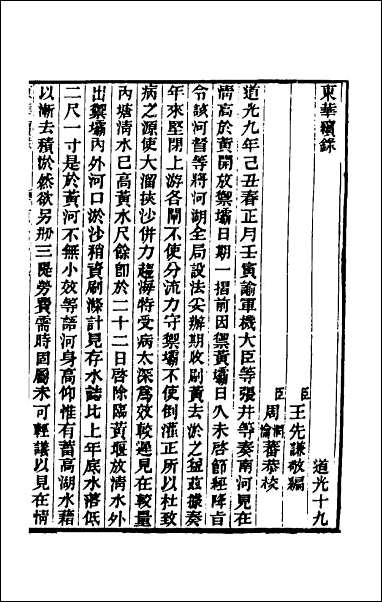 東華續錄
道光十九
臣王先謙敬編
臣周潤蕃恭校
道光九年己丑春正月壬寅諭軍機大臣等張井等奏南河見在
情高於黃開放禦壩日期一摺前因禦黃壩日久未啓節經降旨
令該河督等將河湖全局設法妥辦期收刷黃去淤之益茲據奏
年來堅閉上游各閘不使分流力守禦壩不使倒灌正所以杜致
病之源使大溜挾沙併力趨海特受病太深為效較遲見在較量
內塘清水已高黃水尺餘卽於二十二日啓除臨黃堰放清水外
出禦壩內外河口淤沙稍資刷滌計見存水誌比上年底水落低
二尺一寸是於黃河不無小效等語河身高仰惟有蓄高湖水藉
以漸去積淤然欲另
三隄勞費需時固屬未可輕議以見在情